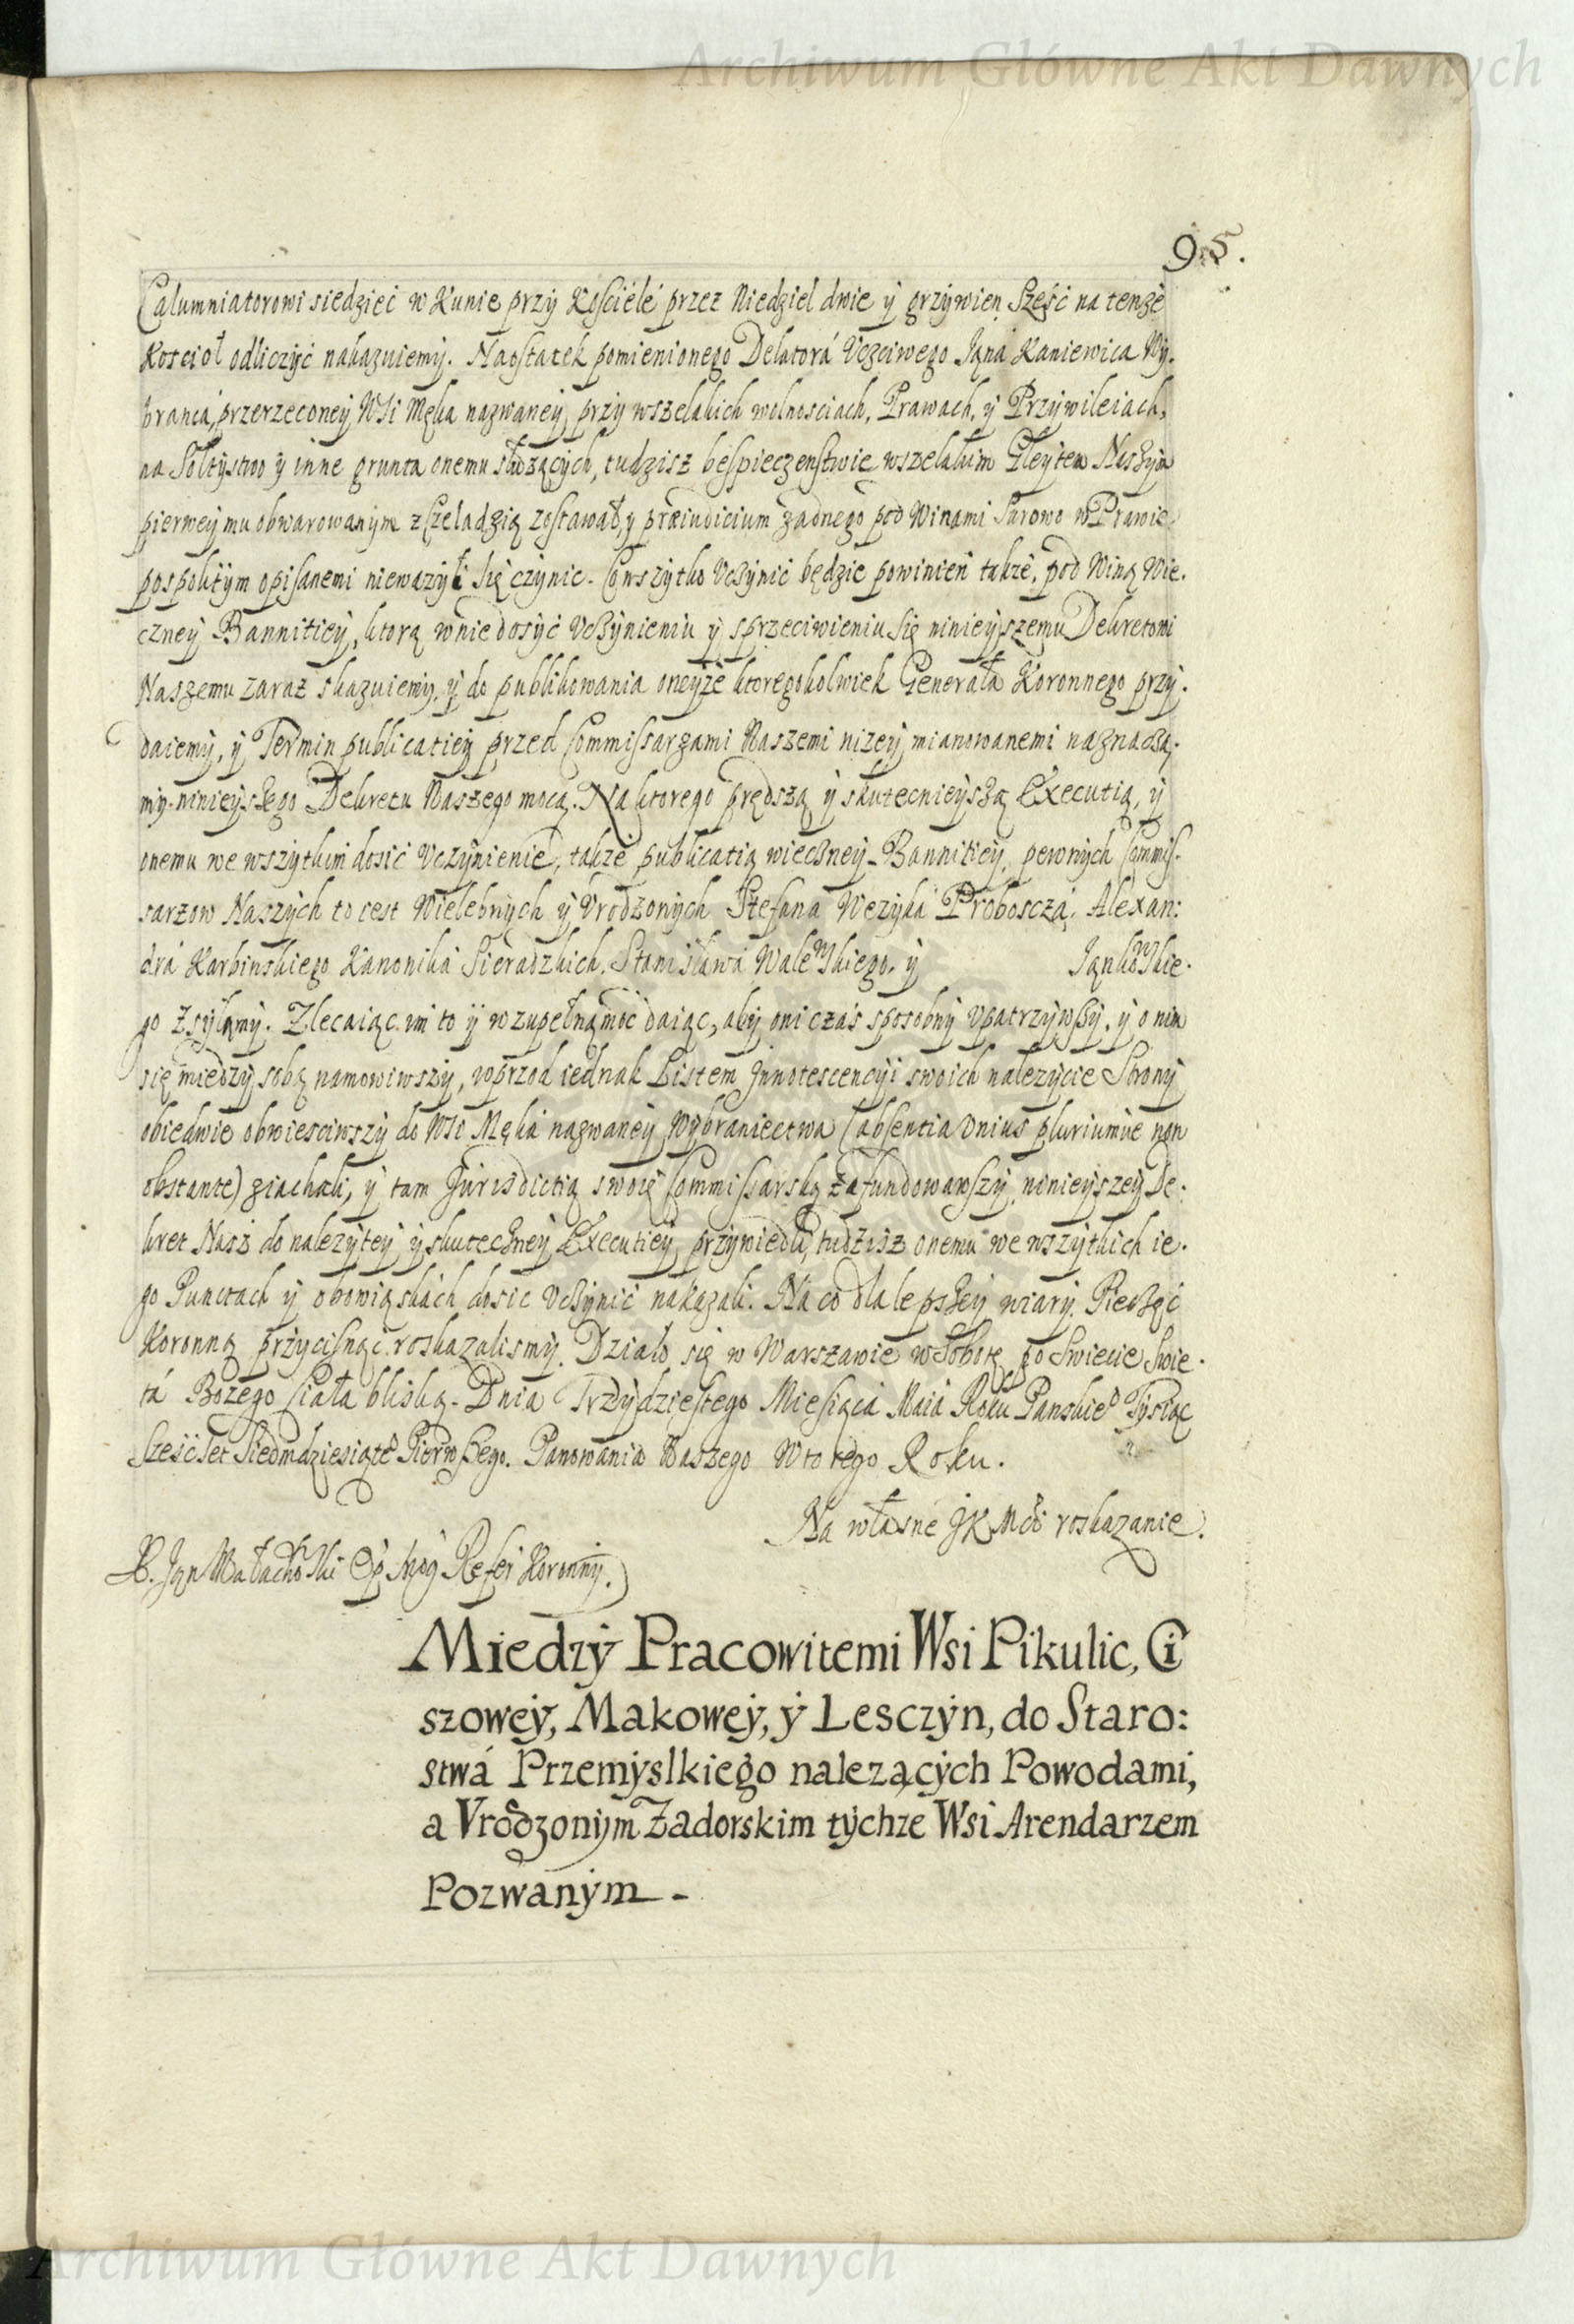 Archiwum Główne Akt Dawnych
95.
Calumniatorowi siedzieć w Kunie przy Kościele przez Niedziel dwie y grzywien Sześć na tenże
Kościoł odliczyć nakazuiemy. Naostatek pomienionego Delatorá Vczciwego Jąná Kaniewica Wy-
branca, przerzeconey Wsi Męka nazwaney, przy wszelakich wolnosciach, Prawach, y Przywileiach,
na Sołtystwo y inne grunta onemu służących, tudzisz bespieczenstwie wszelakim Gleytem Naszym
pierwey mu obwarowanym z Czeladzią zostawał, y præiudicium żadnego pod Winami Surowo w Prawie
pospolitym opisanemi nieważył się czynic. Co wszytko Vczynić będzie powinien także, pod Winą Wie-
czney Bannitiey, ktorą w niedosyć Vczynieniu y sprzeciwieniu się ninieyszemu Dekretowi
Naszemu zaraz skazuiemy, y do publikowania oneyże ktoregokolwiek Generała Koronnego przy-
daiemy, y Termin publicatiey przed Commissarzami Naszemi niżey mianowanemi naznacza-
my ninieyszego Dekretu Naszego mocą. Na ktorego prędszą y skutecnieyszą Executią, y
onemu we wszytkim dosić Vczynienie, także publicatią wieczney Bannitiey, pewnych Commis-
sarzow Naszych to iest Wielebnych y Vrodzonych Stefana Wężyká Proboszczá, Alexan:
drá Karbinskiego Kanoniká Sieradzkich, Stanisława Walewskiego, y Jąnkowskie-
go Zsyłamy. Zlecaiąc im to y w zupełną moc daiąc, aby oni czás sposobny vpatrzywszy, y o nim
się między sobą namowiwszy, wprzod iednak Listem Innotescencyi swoich należycie Strony
obiedwie obwiesciwszy do Wsi Męka nazwaney Wybraniectwa (absentia vnius pluriumue non
obstante) ziachali, y tam Jurisdictią swoię Commissarską zafundowawszy, ninieyszey De-
kret Nasz do należytey y skuteczney Executiey przywiedli, tudzisz onemu we wszytkich ie-
go Punctach y obowiąskách dosic Vczynić nakazali. Na co dla lepszey wiary Pieczęć
Koronną przycisnąć roskazalismy. Działo się w Warszawie w Sobotę po Swięcie Swię-
tá Bożego Ciała bliską. Dnia Trzydziestego Miesiąca Maiá Roku Panskieo Tysiąc
Sześćset Siedmdziesiąteo Pierwszego. Panowania Naszego Wtorego Roku.
Na własne JKMći roskazanie.
X. Jąn Małachowski Refer Koronny.
Między Pracowitemi Wsi Pikulic, Ci
szowey, Makowey, y Lesczyn, do Staro:
stwá Przemyslkiego nalezących Powodami,
a Vrodzonym Zadorskim tychze Wsi Arendarzem
Pozwanym -
Archiwum Główne Akt Dawnych